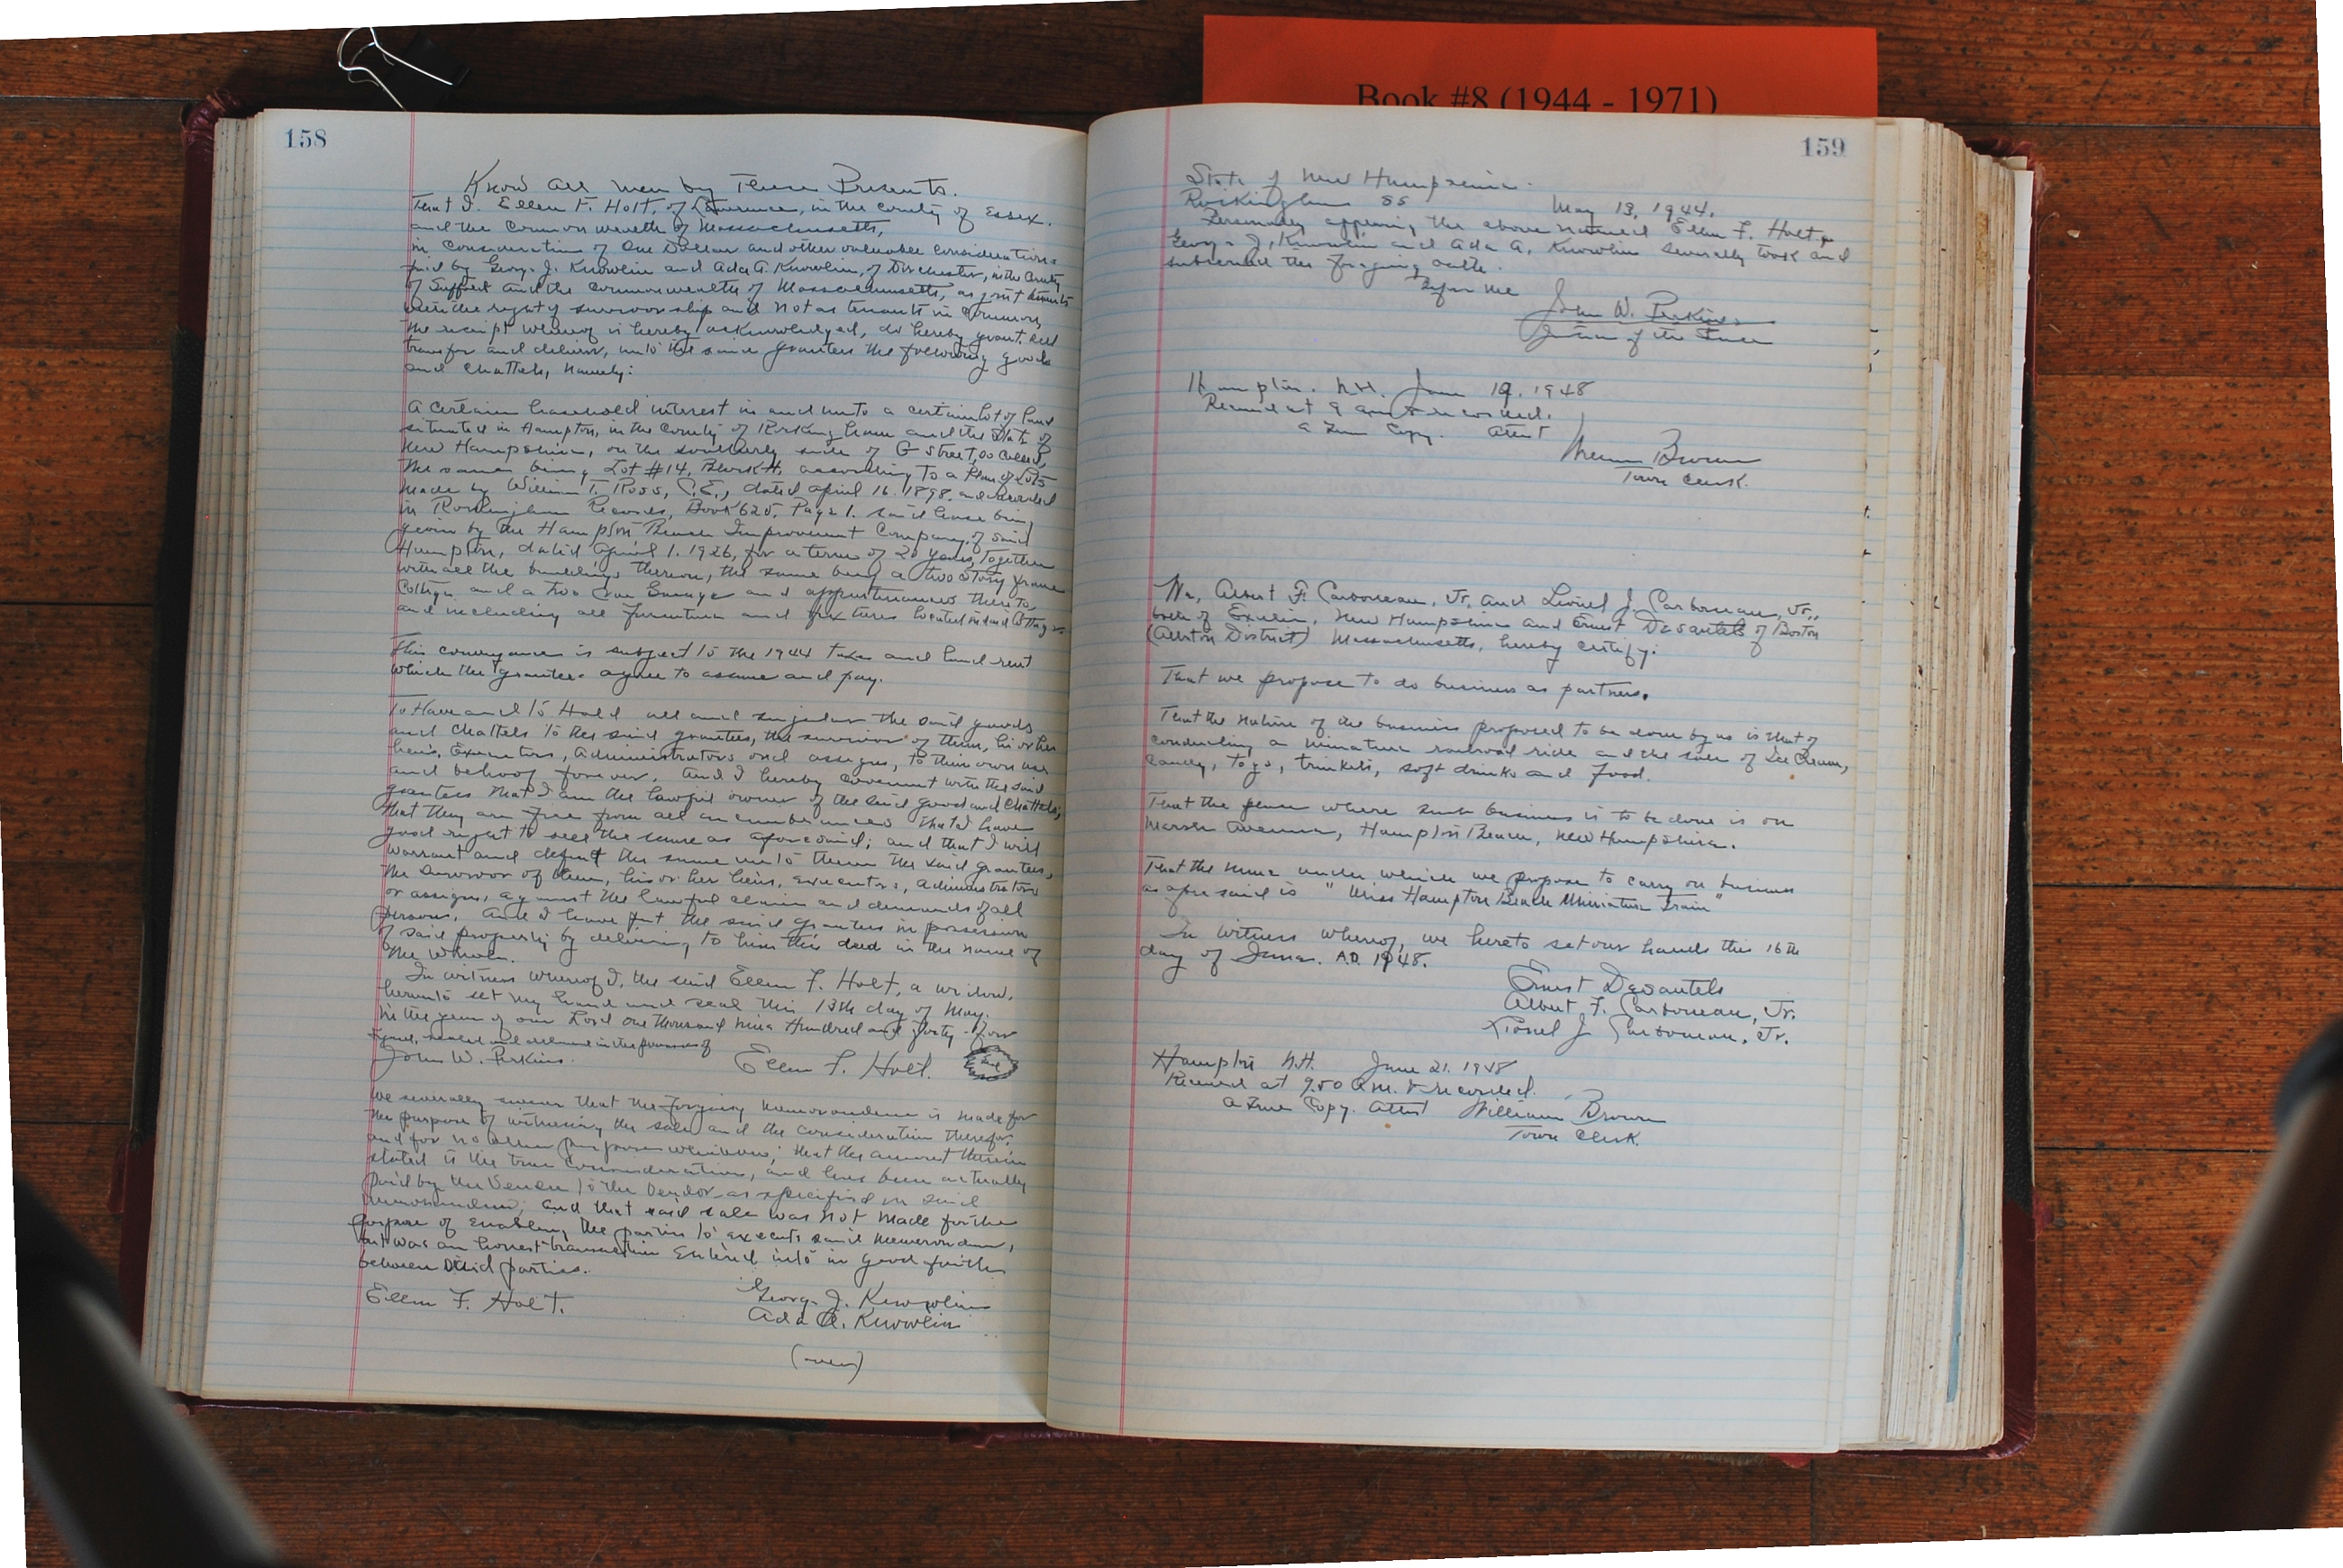 Book #8 (1944 - 1971)
158
Know all men by These Presents.
That I. Ellen F. Holt, of Lawrence, in the County of Essex.
and the Commonwealth of Massachusetts,
in consideration of One Dollar and other valuable considerations
paid by George J. Knowlin and Ada A. Knowlin, of Dorchester, in the County
of Suffolk and the Commonwealth of Massachusetts, as joint tenants
with the right of survivorship and not as tenants in common,
the receipt whereof is hereby acknowledged, do hereby grant, sell
transfer and deliver, unto the said grantees the following goods
and chattels, namely:
A certain leasehold interest in and unto a certain lot of land
situated in Hampton, in the County of Rockingham and the State of
New Hampshire, on the southerly side of G Street, so called,
the same being Lot #14, Block H, according to a Plan of Lots
made by William T. Ross, C.E., dated April 16. 1898. and recorded
in Rockingham Records, Book 625. Page 1. said lease being
given by the Hampton Beach Improvement Company, of said
Hampton, dated April 1. 1926, for a term of 20 years, together
with all the buildings thereon, the same being a two story frame
Cottage and a two Car Garage and appurtenances thereto,
and including all furniture and fixtures located in said Cottage.
This conveyance is subject to the 1944 taxes and land rent
which the grantees agree to assume and pay.
To Have and to Hold all and singular the said goods
and chattels to the said grantees, the survivor of them, his or her
heirs, Executors, Administrators and assigns, to their own use
and behoof forever. And I hereby covenant with the said
grantees that I am the lawful owner of the said goods and chattels;
that they are free from all encumbrances that I have
good right to sell the same as aforesaid; and that I will
warrant and defend the same unto them the said grantees,
the survivor of them, his or her heirs, executors, administrators
or assigns, against the lawful claims and demands of all
persons. And I have put the said grantees in possession
of said property by delivering to him this deed in the name of
the whole.
In witness whereof I, the said Ellen F. Holt, a widow,
hereunto set my hand and seal this 13th day of May.
in the year of our Lord one thousand nine Hundred and forty-four
Signed, sealed and delivered in the presence of
John W. Perkins. Ellen F. Holt. Seal
We severally swear that the forgoing memorandum is made for
the purpose of witnessing the sale and the consideration therefor,
and for no other purpose whatever; that the amount therein
stated is the true consideration, and has been actually
paid by the Vendee to the Vendor as specified in said
memorandum; and that said sale was not made for the
purpose of enabling the parties to execute said memorandum,
but was an honest transaction entered into in good faith
between said parties.
Ellen F. Holt. George J. Knowlin
Ada A. Knowlin
(over)
159
State of New Hampshire.
Rockingham SS May 13, 1944.
Personally appearing the above named Ellen F. Holt,
George J. Knowlin and Ada A. Knowlin severally took and
subscribed the forgoing oath.
Before me
John W. Perkins
Justice of the Peace
Hampton. N.H. June 19, 1948
Received at 9 am & recorded.
a True Copy. Attest
William Brown
Town Clerk.
We, Albert F. Carbonneau, Jr. and Lionel J. Carbonneau, Jr.,
both of Exeter, New Hampshire and Ernest Desautels of Boston
(Allston District) Massachusetts, hereby certify:
That we propose to do business as partners.
That the nature of the business proposed to be done by us is that of
conducting a miniature railroad ride and the sale of Ice Cream,
Candy, toys, trinkets, soft drinks and food.
That the place where such business is to be done is on
Marsh Avenue, Hampton Beach, New Hampshire.
That the name under which we propose to carry on business
as afore said is "Miss Hampton Beach Miniature Train"
In Witness whereof, we hereto set our hands this 16th
day of June. A.D. 1948.
Ernest Desautels
Albert F. Carbonneau, Jr.
Lionel J Carbonneau, Jr.
Hampton N.H. June 21. 1948
Received at 9.50 A.M. & recorded.
a True Copy. Attest William Brown
Town Clerk.